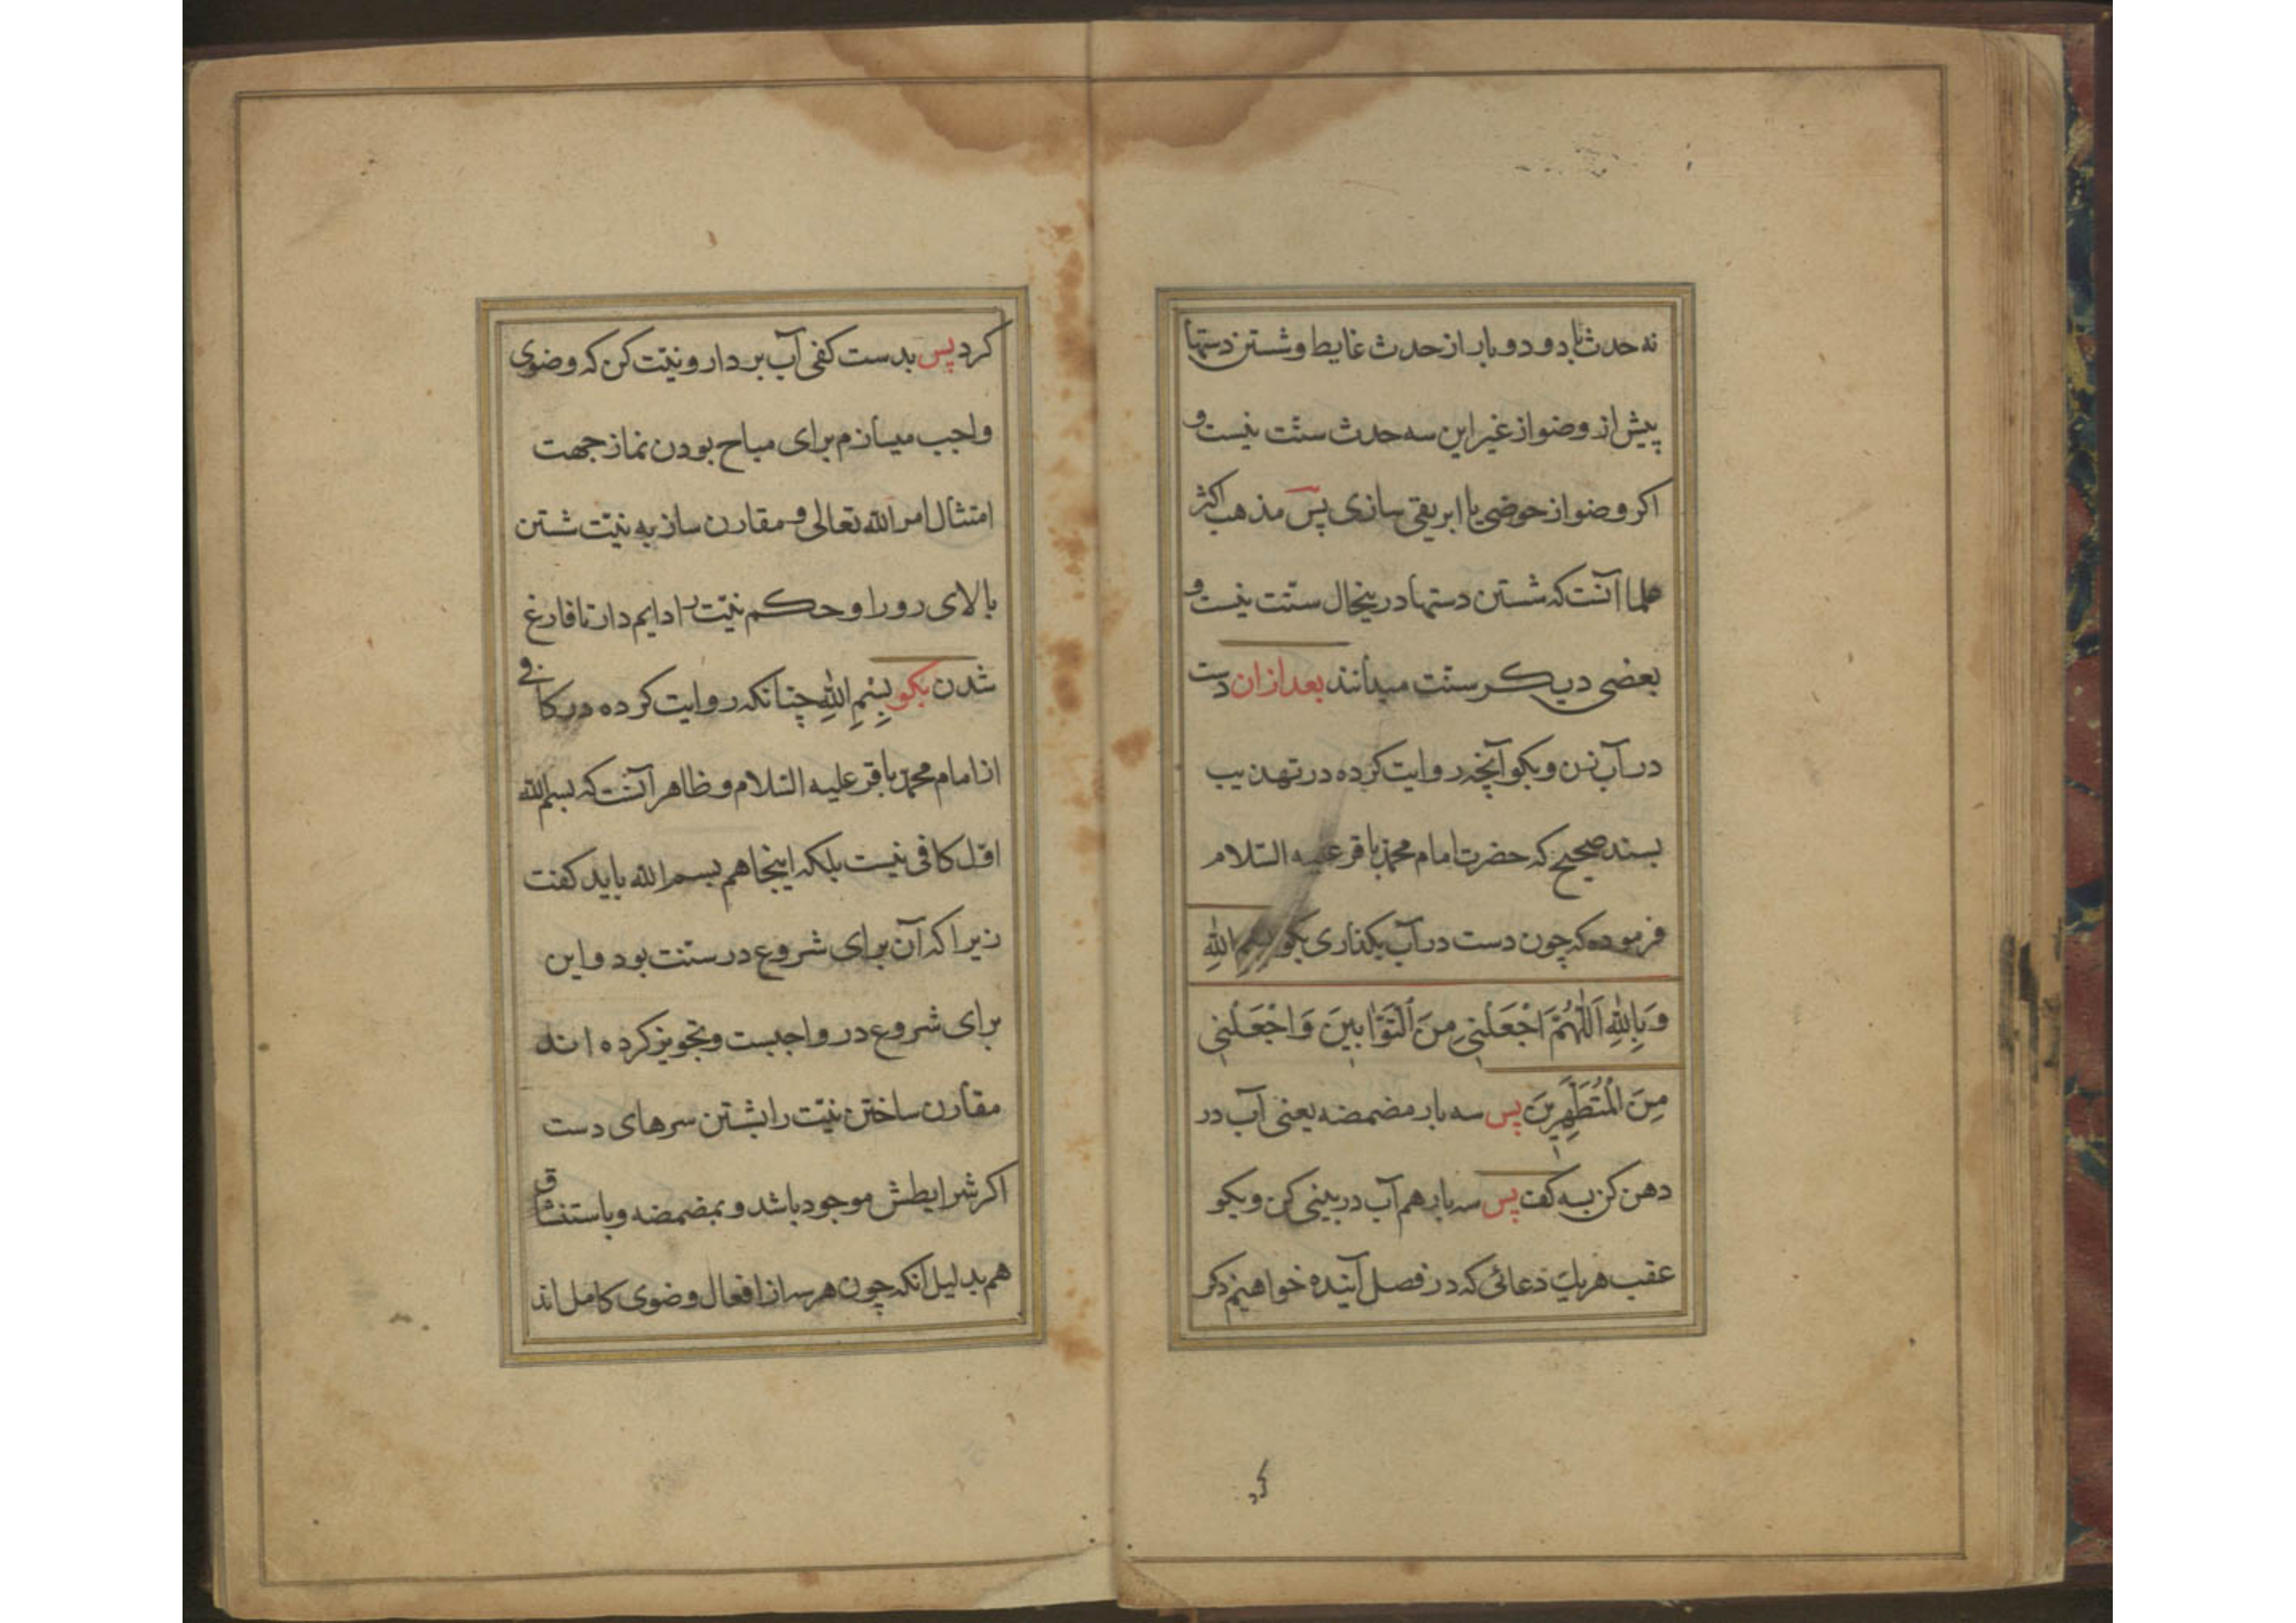 نه حدث باد و دو بار از حدث غایط و شستن دستها
پیش از وضو از غیر این سه حدث سنّت نیست و
اکر وضو از حوضی یا ابریقی سازی پس مذهب اکثر
علما آنست که شستن دستها درینحال سنّت نیست و
بعضی دیکر سنّت میدانند بعد از ان دست
در آب زن و بکو آنچه روایت کرده در تهذیب
بسند صحیح که حضرت امام محمّد باقر علیه السّلام
فرموده که چون دست در آب بکذاری بکو بِسْمِ اللهِ
وَبِاللهِ اَللّٰهُمَّ اجْعَلْنِی مِنَ التَّوّٰابینَ وَاجْعَلْنِی
مِنَ الْمُتَطَهِّرینَ پس سه بار مضمضه یعنی آب در
دهن کن بسه کف پس سه بار هم آب در بینی کن و بکو
عقب هر یک دعائی که در فصل آینده خواهیم ذکر
کرد
کرد پس بدست کفی آب بردار و نیّت کن که وضوی
واجب میسازم برای مباح بودن نماز جهت
امتثال امر الله تعالی و مقارن ساز به نیّت شستن
بالای رو را و حکم نیّت را دایم دار تا فارغ
شدن بکو بِسْمِ اللهِ چنانکه روایت کرده در کافی
از امام محمّد باقر علیه السّلام و ظاهر آنست که بسم الله
اوّل کافی نیست بلکه اینجا هم بسم الله باید کفت
زیرا که آن برای شروع در سنّت بود و این
برای شروع در واجبست و تجویز کرده اند
مقارن ساختن نیّت را بشستن سرهای دست
اکر شرایطش موجود باشد و بمضمضه و باستنشاق
هم بدلیل آنکه چون هر سه از افعال وضوی کامل اند